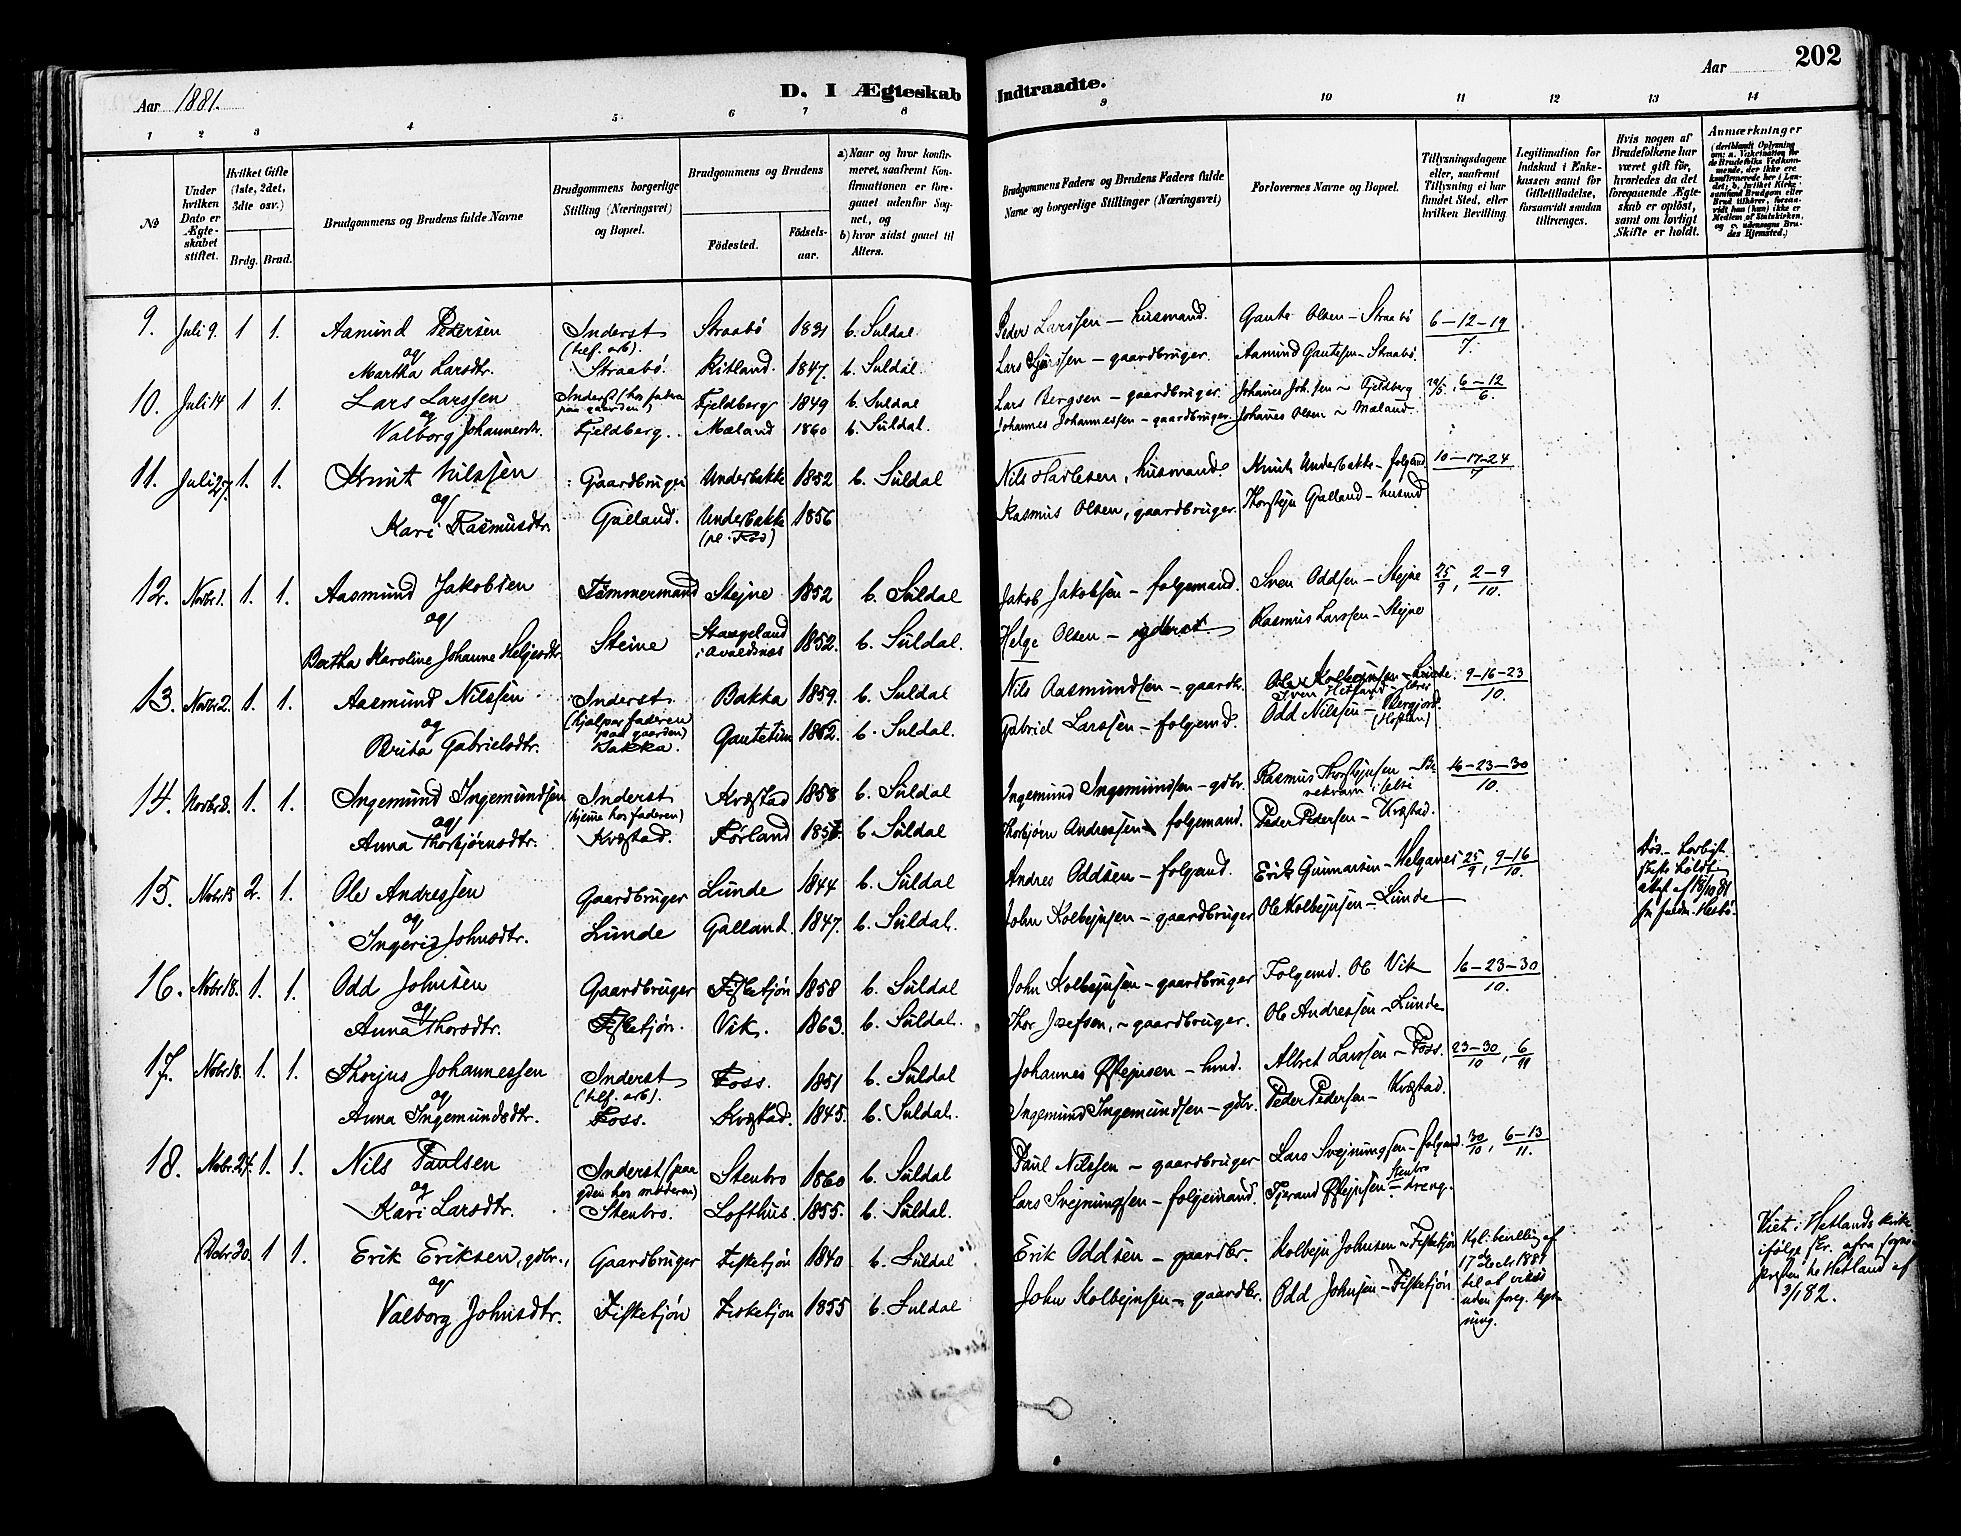 Aar 1881.
D. I Ægteskab Indtraadte.
Aar
202
1 2 3 4 5 6 7 8 9 10 11 12 13 14
№
Under hvilken Dato er Ægteskabet stiftet.
Hvilket Gifte (1ste, 2det, 3die osv.)
Brdg. Brud.
Brudgommens og Brudens fulde Navne
Brudgommens borgerlige Stilling (Næringsvei) og Bopæl.
Brudgommens og Brudens
Födested.
Födsels-aar.
a) Naar og hvor konfirmeret, saafremt Konfirmationen er foregaaet udenfor Sognet, og
b) hvor sidst gaaet til Alters.
Brudgommens Faders og Brudens Faders fulde Navne og borgerlige Stillinger (Næringsvei)
Forlovernes Navne og Bopæl.
Tillysningsdagene eller, saafremt Tillysning ei har fundet Sted, efter hvilken Bevilling
Legitimation for Indskud i Enkekassen samt for Giftetilladelse, forsaavidt saadan tiltrænges.
Hvis nogen af Brudefolkene har været gift för, hvorledes da det foregaaende Ægteskab er oplöst, samt om lovligt Skifte er holdt.
Anmærkninger
9. Juli 9. 1 1. Aamund Pedersen Inderst Straabö 1831 b. Suldal Peder Larssen – husmand. Gaute Olsen – Straabö 6–12–19
og (tilf. arb). 7.
Martha Larsdtr. Straabö. Ritland. 1847. b. Suldal Lars – gaardbruger. Aamund Gautesen – Straabö.
10. Juli 14 1 1. Lars Larssen Inderst (hos fadren Fjeldberg 1849 b. Suldal Lars Bergsen – gaardbruger. Johanes Joh.sen – Fjeldberg 29/5, 6–12
og paa gaarden) 6.
Valborg Johannesdtr. Fjeldberg. Mæland 1860 b. Suldal. Johannes Johannessen – gaardbruger. Johanes Olsen – Mæland.
11. Juli 27. 1. 1. Knut Nilssen Gaardbruger Underbakke 1852 b. Suldal Nils, husmand. Knut Underbakke – folgemd 10–17–24
og 7
Kari Rasmusdtr. Galland. Underbakke 1856 Rasmus Olsen, gaardbruger. Thorstejn Galland – husmd
(pl. Fos)
12. Novbr 1. 1. 1. Aasmund Jakobsen Tömmermand Stejne 1852 b. Suldal Jakob Jakobsen – folgemand. Sven Oddsen – Stejne 25/9, 2–9
og 10.
Bertha Karoline Johanne Heljesdtr. Steine Stangeland 1852. b. Suldal. Helge Olsen – Rasmus Larssen – Stejne
i Avaldsnes
13. Novbr 2. 1. 1. Aasmund Nilssen Inderst Bakka 1859. b. Suldal Nils Aasmundsen – gaardbr. 9–16–23
og (hjælper faderen 10.
paa gaarden)
Brita Gabrielsdtr. Bakka. Gautetun 1862. b. Suldal. Gabriel Larssen – folgemd. Odd Nilssen –
14. Novbr 8. 1. 1. Ingemund Ingemundsen Inderst Kvæstad 1858 b. Suldal Ingemund Ingemundsen – gdbr. Rasmus Thorstejnsen – 16–23–30
og (hjemme hos faderen) 10.
Anna Thorbjörnsdtr. Kvæstad. Förland b. Suldal Thorbjörn Andreassen – folgemand. Peder Pedersen – Kvæstad.
15. Novbr 15 2. 1. Ole Andressen Gaardbruger Lunde 1844 b. Suldal Andres Oddsen – folgemd. Erik Gunnarsen – Helganes 25/9, 9–16 Död – Lovligt
og 10. skifte holdt
Ingeri Johnsdtr. Lunde Galland. 1847. b. Suldal. John Kolbejnsen – gaardbruger Ole Kolbejnsen – Lunde attest af 18/10 81
16. Novbr 18. 1. 1. Odd Johnsen Gaardbruger Fisketjön 1858 b. Suldal John Kolbejnsen – gaardbruger Folgemd. Ole Vik 16–23–30
og 10.
Anna Thorsdtr. Fisketjön. Vik. 1863. b. Suldal. Thor Josefsen, – gaardbruger. Ole Andressen – Lunde
17. Novbr 18. 1. 1. Thorjus Johannessen Inderst Foss. 1851 b. Suldal Johannes Östejnsen – husmd. Albret Larssen – Foss. 23–30/10, 6/11
og (tilf. arb).
Anna Ingemundsdtr. Foss. Kvæstad. 1845. b. Suldal. Ingemund Ingemundsen – gdbr. Peder Pedersen – Kvæstad.
18. Novbr. 27. 1. 1. Nils Paulsen Inderst (paa Stenbro 1860 b. Suldal Paul Nilssen – gaardbruger Lars Svejnungsen – folgemd. 30/10, 6–13
og gden hos moderen) Stenbro 11.
Kari Larsdtr. Stenbro. Lofthus. 1855. b. Suldal. Lars Svejnungsen – folgemand. Tjerand Östejnsen – dreng.
Decbr 30. 1 1. Erik Eriksen, gdbr., Gaardbruger Fisketjön 1840 b. Suldal Erik Oddsen – gaardbr. Kolbejn Johnsen – Fisketjön Kgl. bevilling af Viet i Hetlands kirke
og 17de decbr 1881 ifölge skr. fra sogne-
Valborg Johnsdtr. Fisketjön Fisketjön 1855 b. Suldal John Kolbejnsen – gaardbr. Odd Johnsen – Fisketjön til at vies præsten til Hetland af
uden foreg. lys- 3/1 82.
ning.